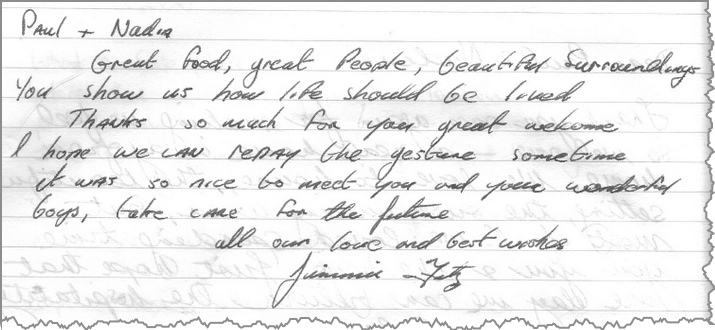 Paul + Nadia
Great food, great People, beautiful Surroundings
You show us how life should be lived
Thanks so much for your great welcome
I hope we can repay the gesture sometime
it was so nice to meet you and your wonderful
boys, take care for the future
all our love and best wishes
Jimmie Fitz